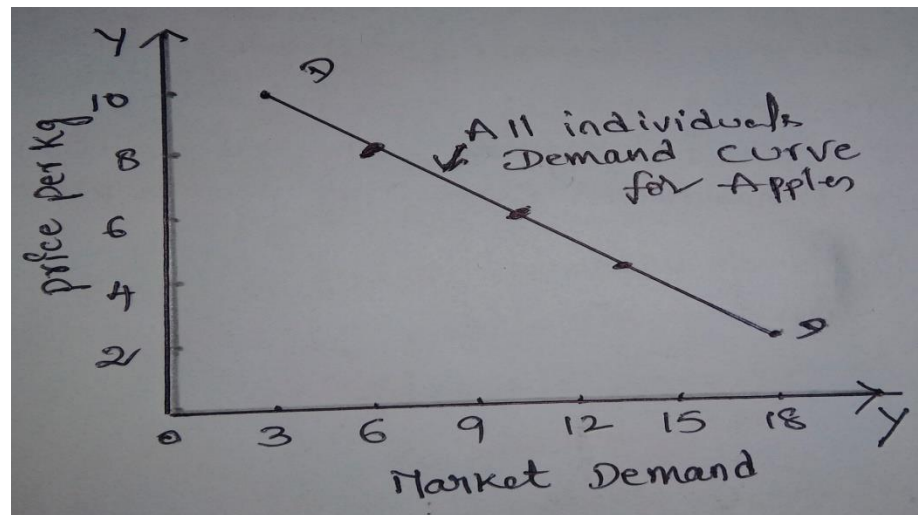 Y
D
10
8
6
4
2
price per kg
All individuals
Demand curve
for Apples
D
0 3 6 9 12 15 18
Y
Market Demand